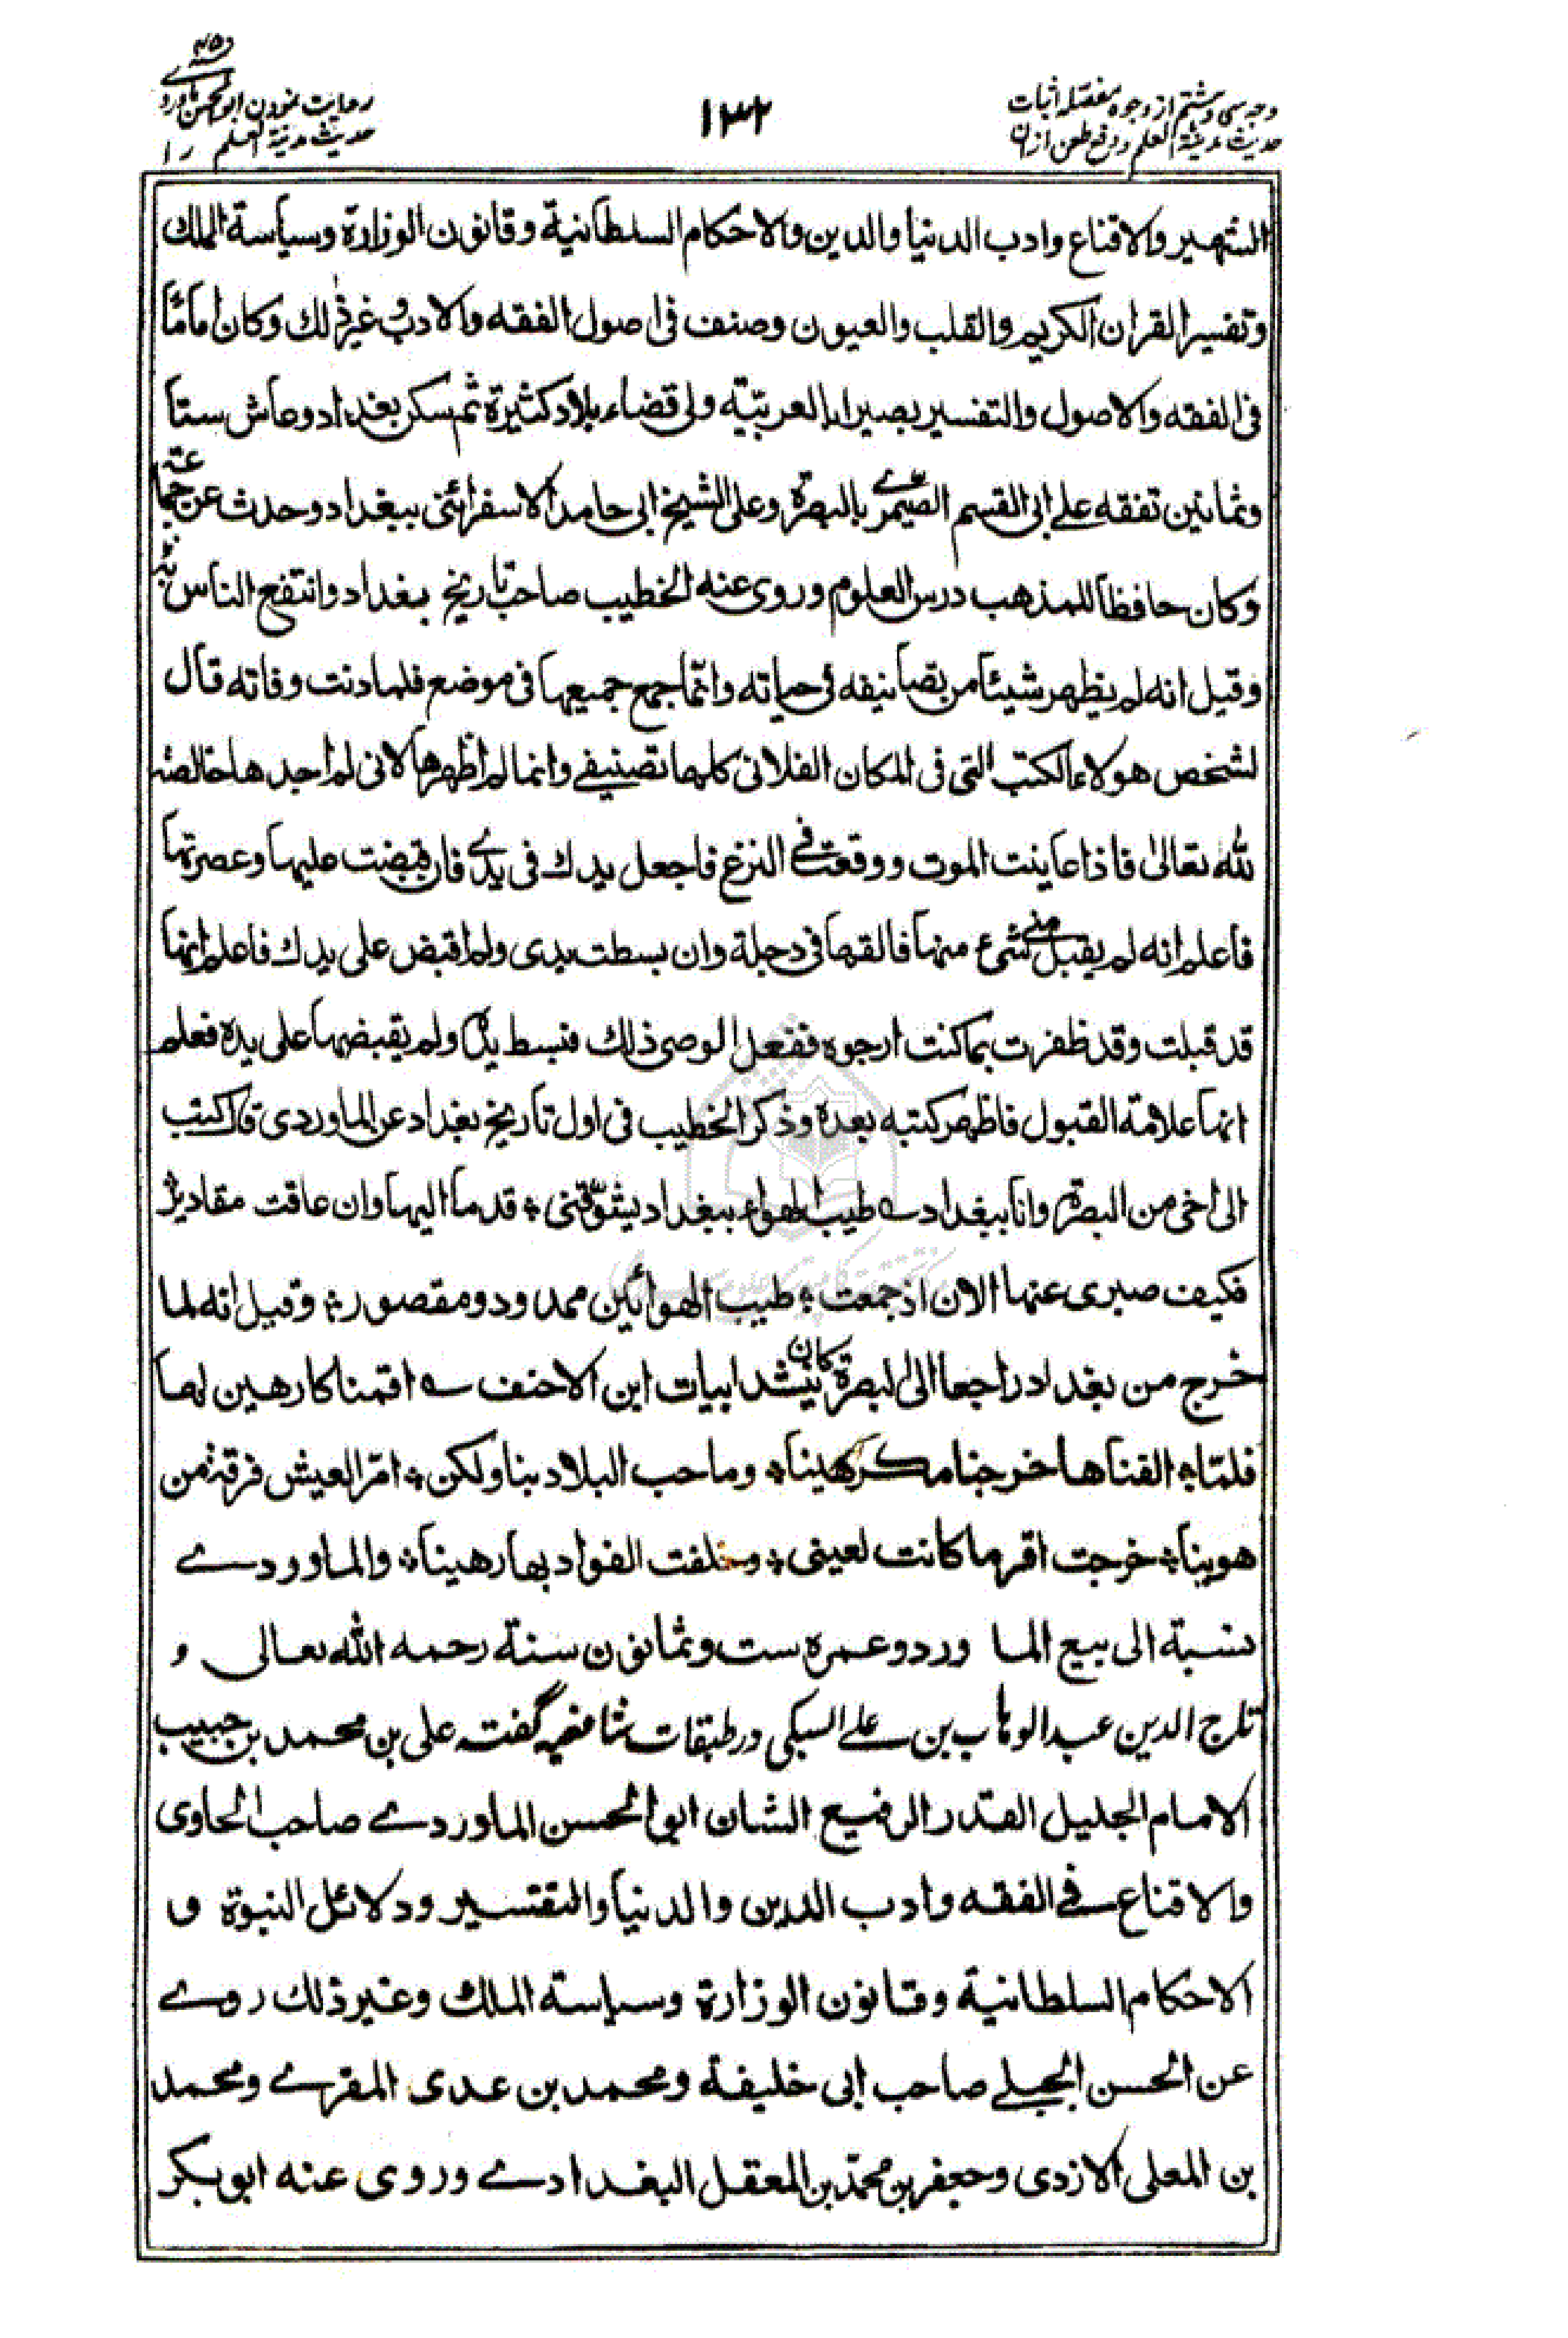 وجه سی و هشتم از وجوه مفصله اثبات
حدیث مدینة العلم و دفع طعن ازان
۱۳۲
روایت نمودن ابو الحسن ماوردے
حدیث مدینة العلم را
الشهير والاقناع وادب الدنيا والدين والاحكام السلطانية وقانون الوزارة وسياسة الملك
وتفسير القران الكريم والقلب والعيون وصنف فى اصول الفقه والادب وغير ذلك وكان اماما
فى الفقه والاصول والتفسير بصيرا بالعربيّة ولى قضاء بلاد كثيرة ثم سكن بغداد وعاش ستا
وثمانين تفقه على ابى القسم الصيمرے بالبصرة وعلى الشيخ ابى حامد الاسفرائنى ببغداد وحدث عن جماعته
وكان حافظا للمذهب درس العلوم وروى عنه الخطيب صاحب تاريخ بغداد وانتفع الناس به
وقيل انه لم يظهر شيئا من تصانيفه فى حياته وانّما جمع جميعها فى موضع فلما دنت وفاته قال
لشخص هولاء الكتب التى فى المكان الفلانى كلها تصنيفے وانما لم اظهرها لانى لم اجدها خالصة
لله تعالىٰ فاذا عاينت الموت ووقعت فے النزع فاجعل يدك فى يدے فان قبضت عليها وعصرتها
فاعلم انه لم يقبل منے شىء منها فالقها فى دجلة وان بسطت يدى ولم اقبض على يدك فاعلم انها
قد قبلت وقد ظفرت بما كنت ارجوه ففعل الوصى ذلك فبسط يده ولم يقبضها على يده فعلم
انها علامة القبول فاظهر كتبه بعده وذكر الخطيب فى اول تاريخ بغداد عن الماوردى قال كتب
الى اخى من البصرة وانا ببغداد ؎ طيب الهواء ببغداد يشوّقنى ٭ قدما اليها وان عاقت مقادير
فكيف صبرى عنها الان اذ جمعت ٭ طيب الهوائين ممدود ومقصور ٭ وقيل انه لما
خرج من بغداد راجعا الى البصرة كان ينشد ابيات ابن الاحنف ؎ اقمنا كارهين لها
فلمّا ٭ الفناها خرجنا مكرهينا ٭ وما حب البلاد بنا ولكن ٭ امر العيش فرقة من
هوينا ٭ خرجت اقر ما كانت لعينى ٭ وخلفت الفواد بها رهينا ٭ والماوردے
نسبة الى بيع الما ورد وعمره ست وثمانون سنة رحمه الله تعالى و
تاج الدين عبد الوهاب بن علے السبكى در طبقات شافعيه گفته على بن محمد بن حبيب
الامام الجليل القدر الرفيع الشان ابو الحسن الماوردے صاحب الحاوى
والاقناع فے الفقه وادب الدين والدنيا والتفسير ودلائل النبوة و
الاحكام السلطانية وقانون الوزارة وسياسة الملك وغير ذلك روے
عن الحسن الجبلے صاحب ابى خليفة ومحمد بن عدى المقرے ومحمد
بن المعلى الازدى وجعفر بن محمد بن المعقل البغدادے وروى عنه ابو بكر